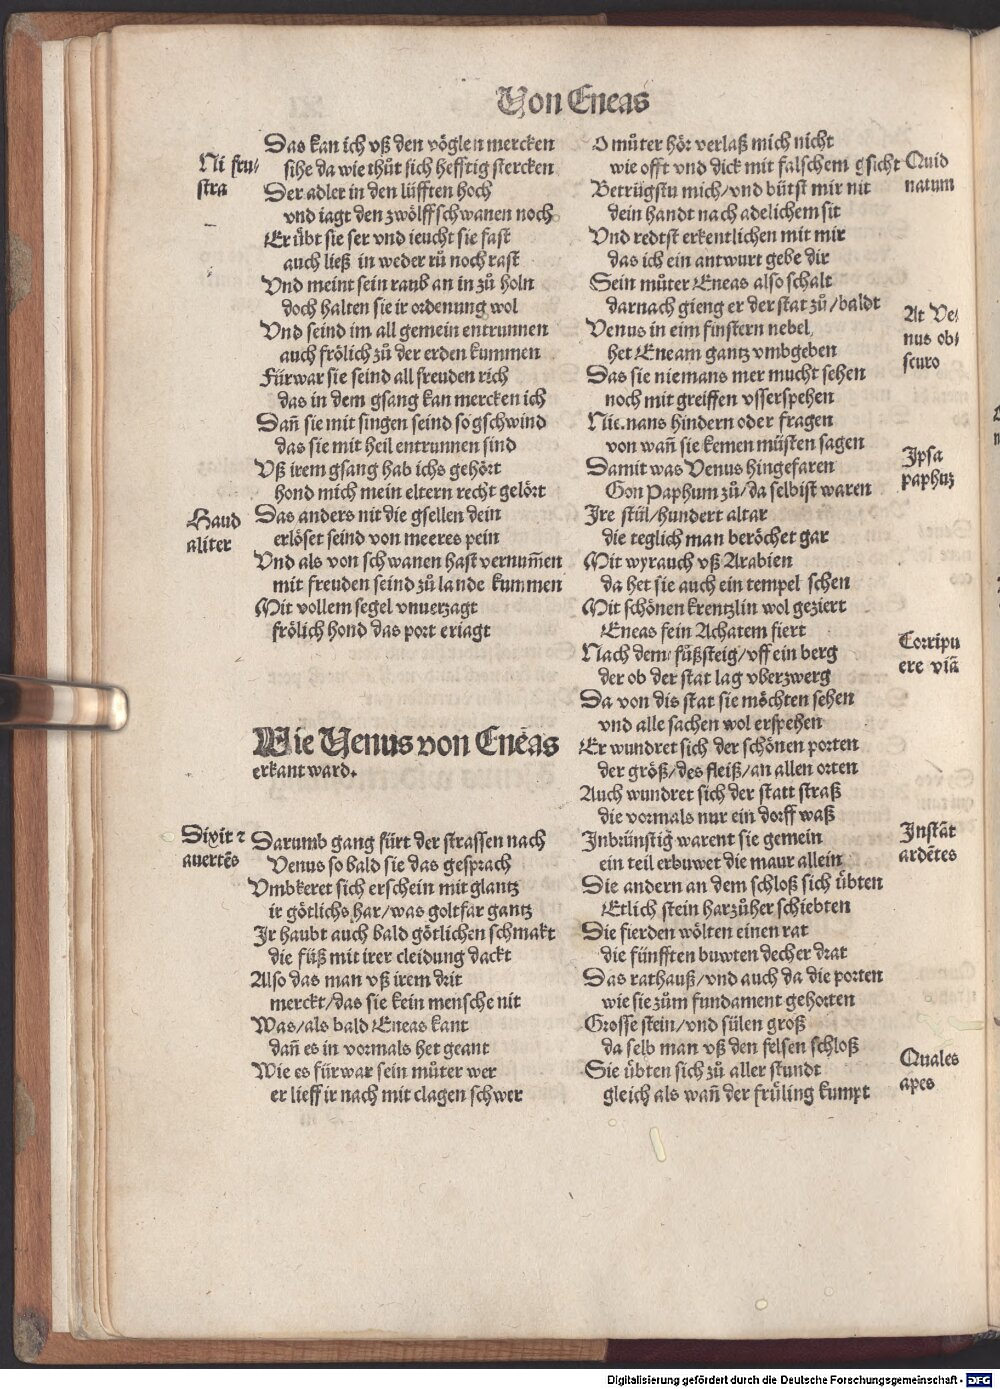 Von Eneas
Das kan ich vß den vöglen mercken
Ni fru-
stra
sihe da wie thůt sich hefftig stercken
Der adler in den lüfften hoch
vnd iagt den zwölff schwanen noch
Er ůbt sie ser vnd ieucht sie fast
auch ließ in weder rů noch rast
Vnd meint sein raub an in zů holn
doch halten sie ir ordenung wol
Vnd seind im all gemein entrunnen
auch frölich zů der erden kummen
Fürwar sie seind all freuden rich
das in dem gsang kan mercken ich
Dañ sie mit singen seind so gschwind
das sie mit heil entrunnen sind
Vß irem gsang hab ichs gehört
hond mich mein eltern recht gelört
Haud
aliter
Das anders nit die gsellen dein
erlöset seind von meeres pein
Vnd als von schwanen hast vernum̃en
mit freuden seind zů lande kummen
Mit vollem segel vnuerzagt
frölich hond das port eriagt
Wie Venus von Eneas
erkant ward.
Dixit ⁊
auertẽs
Darumb gang fürt der strassen nach
Venus so bald sie das gesprach
Vmbkeret sich erschein mit glantz
ir götlichs har/was goltfar gantz
Ir haubt auch bald götlichen schmakt
die füß mit irer cleidung dackt
Also das man vß irem drit
merckt/das sie kein mensche nit
Was/als bald Eneas kant
dañ es in vormals het geant
Wie es fürwar sein můter wer
er lieff ir nach mit clagen schwer
O můter hör verlaß mich nicht
wie offt vnd dick mit falschem gsicht
Quid
natum
Betrügstu mich/vnd bütst mir nit
dein handt nach adelichem sit
Vnd redtst erkentlichen mit mir
das ich ein antwurt gebe dir
Sein můter Eneas also schalt
darnach gieng er der stat zů/baldt
At Ve-
nus ob-
scuro
Venus in eim finstern nebel
het Eneam gantz vmbgeben
Das sie niemans mer mucht sehen
noch mit greiffen vsserspehen
Niemans hindern oder fragen
von wañ sie kemen müsten sagen
Ipsa
paphuz
Damit was Venus hingefaren
Gon Paphum zů/da selbist waren
Ire stül/hundert altar
die teglich man beröchet gar
Mit wyrauch vß Arabien
da het sie auch ein tempel schen
Mit schönen krentzlin wol geziert
Eneas sein Achatem fiert
Corripu
ere viã
Nach dem fůßsteig/vff ein berg
der ob der stat lag vberzwerg
Da von dis stat sie möchten sehen
vnd alle sachen wol erspehen
Er wundret sich der schönen porten
der größ/des fleiß/an allen orten
Auch wundret sich der statt straß
die vormals nur ein dorff waß
Instãt
ardẽtes
Inbrünstig warent sie gemein
ein teil erbuwet die maur allein
Die andern an dem schloß sich übten
Etlich stein harzůher schiebten
Die fierden wölten einen rat
die fünfften buwten decher drat
Das rathauß/vnd auch da die porten
wie sie zům fundament gehorten
Grosse stein/vnd sülen groß
da selb man vß den felsen schloß
Quales
apes
Sie übten sich zů aller stundt
gleich als wañ der früling kumpt
Digitalisierung gefördert durch die Deutsche Forschungsgemeinschaft - DFG